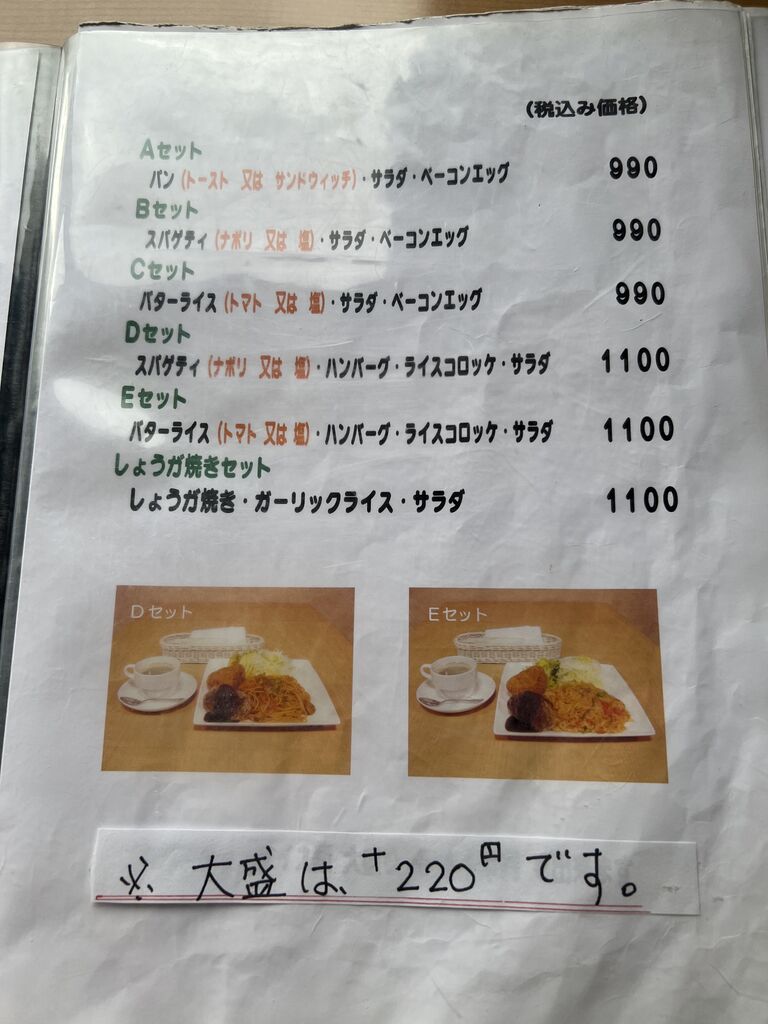 (税込み価格)
Aセット
パン(トースト 又は サンドウィッチ)・サラダ・ベーコンエッグ 990
Bセット
スパゲティ(ナポリ 又は 塩)・サラダ・ベーコンエッグ 990
Cセット
バターライス(トマト 又は 塩)・サラダ・ベーコンエッグ 990
Dセット
スパゲティ(ナポリ 又は 塩)・ハンバーグ・ライスコロッケ・サラダ 1100
Eセット
バターライス(トマト 又は 塩)・ハンバーグ・ライスコロッケ・サラダ 1100
しょうが焼きセット
しょうが焼き・ガーリックライス・サラダ 1100
Dセット
Eセット
※ 大盛は、+220円です。